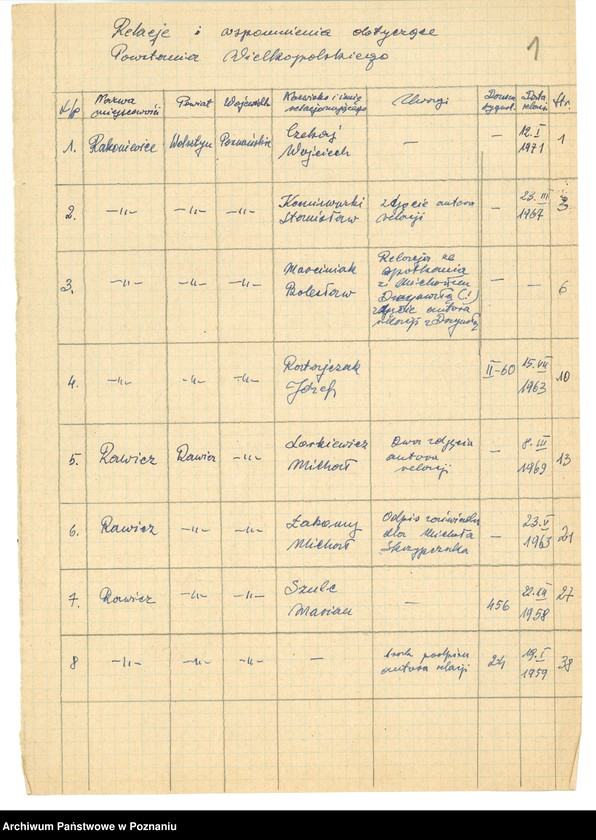 Relacje i wspomnienia dotyczące
Powstania Wielkopolskiego
1
L/p Nazwa miejscowości Powiat Województ. Nazwisko i imię relacjonującego Uwagi Dawna sygnat. Data relacji Str.
1. Rakoniewice Wolsztyn Poznańskie Czekaj Wojciech — — 12.I 1971 1
2. —"— —"— —"— Stanisław zdjęcie autora relacji — 23.III 1967 3
3. —"— —"— —"— Marciniak Bolesław Relacja ze spotkania z Michałem Drzymałą (!) zdjęcie autora relacji z Drzymałą — — 6
4. —"— —"— —"— Ratajczak Józef II-60 15.VII 1963 10
5. Rawicz Rawicz —"— Michał Dwa zdjęcia autora relacji — 8.III 1969 13
6. Rawicz —"— —"— Łakomy Michał Odpis dla Michała Skrzypczaka — 23.V 1963 21
7. Rawicz —"— —"— Szulc Marian — 456 1958 27
8 —"— —"— —"— — brak podpisu autora relacji 24 19.I 1959 38
Archiwum Państwowe w Poznaniu